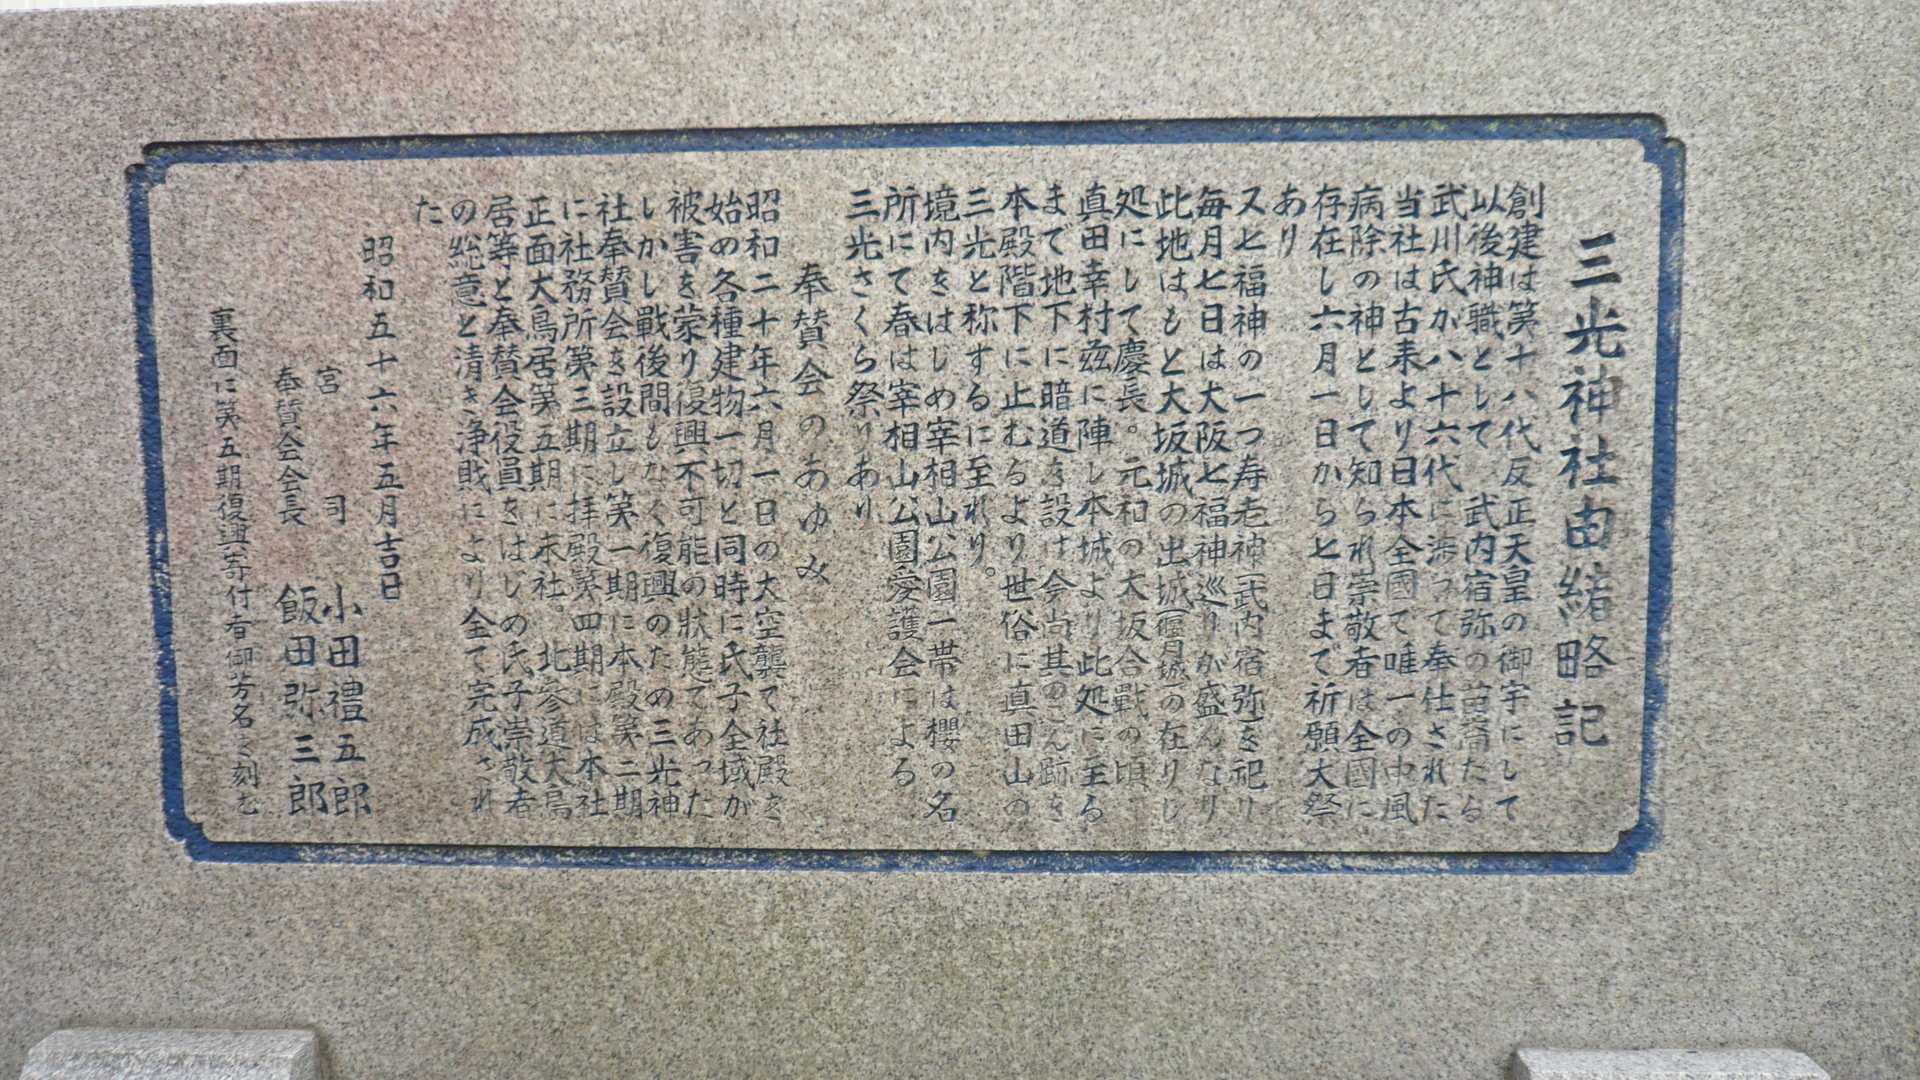 三光神社由緒略記
創建は第十八代反正天皇の御宇にして
以後神職として 武内宿弥の苗裔たる
武川氏が八十六代に渉って奉仕された
当社は古来より日本全國で唯一の中風
病除の神として知られ崇敬者は全國に
存在し六月一日から七日まで祈願大祭
あり
又七福神の一つ寿老神(武内宿弥)を祀り
毎月七日は大阪七福神巡りが盛んなり
此地はもと大坂城の出城(偃月城)の在りし
処にして慶長。元和の大坂合戰の頃
真田幸村茲に陣し本城より此処に至る
まで地下に暗道を設け今尚其のこん跡を
本殿階下に止むるより世俗に真田山の
三光と称するに至れり。
境内をはじめ宰相山公園一帯は櫻の名
所にて春は宰相山公園愛護会による
三光さくら祭りあり
奉賛会のあゆみ
昭和二十年六月一日の大空襲で社殿を
始め各種建物一切と同時に氏子全域が
被害を蒙り復興不可能の状態であった
しかし戰後間もなく復興のための三光神
社奉賛会を設立し第一期に本殿第二期
に社務所第三期に拝殿第四期には本社
正面大鳥居第五期に末社。北参道大鳥
居等と奉賛会役員をはじめ氏子崇敬者
の総意と清き浄財により全て完成され
た
昭和五十六年五月吉日
宮司 小田禮五郎
奉賛会会長 飯田弥三郎
裏面に第五期復興寄付者御芳名を刻む